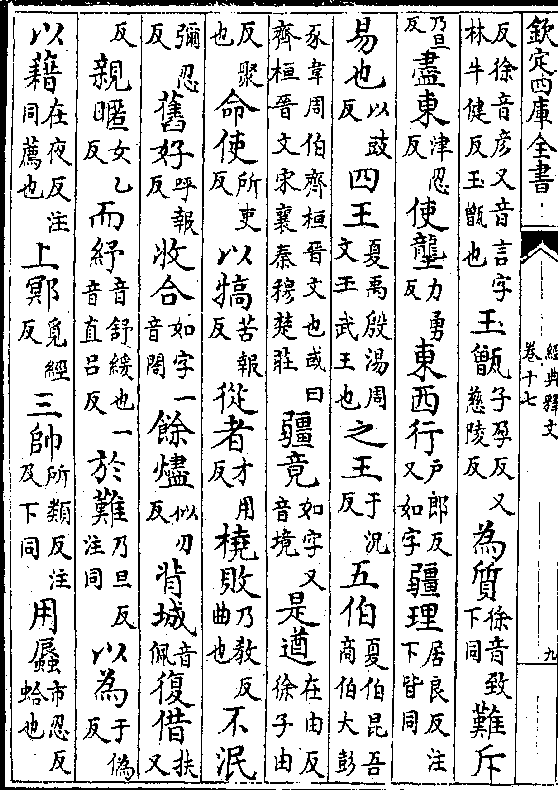 欽定四庫全書 經典釋文 卷十七 九
反徐音彥又音言字林牛健反玉甑也 玉甑子孕反又慈陵反 為質徐音致下同 難斥
乃旦反 盡東津忍反 使壟力勇反 東西行户郎反又如字 疆理居良反注下皆同
易也以豉反 四王夏禹殷湯周文王武王也 之王于況反 五伯夏伯昆吾商伯大彭
豕韋周伯齊桓晉文也或曰齊桓晉文宋襄秦穆楚莊 疆竟如字又音境 是遒在由反徐子由
反聚也 命使所吏反 以犒苦報反 從者才用反 橈敗乃教反曲也 不泯
彌忍反 舊好呼報反 收合如字一音閤 餘燼似刃反 背城音佩 復借扶又
反 親暱女乙反 而紓音舒緩也一音直呂反 於難乃旦反注同 以為于偽反
以藉在夜反注同薦也 上鄍覓經反 三帥所類反注及下同 用蜃市忍反蛤也